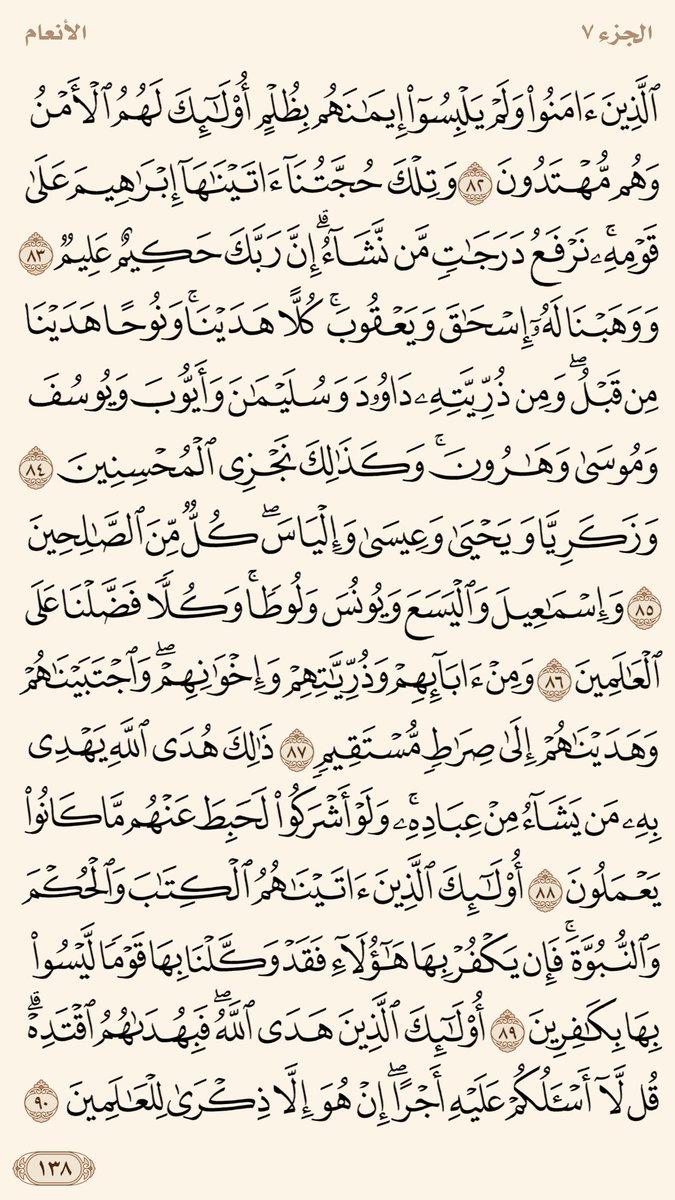 الجزء ٧
الأنعام
ٱلَّذِينَ ءَامَنُوا۟ وَلَمْ يَلْبِسُوٓا۟ إِيمَـٰنَهُم بِظُلْمٍ أُو۟لَـٰٓئِكَ لَهُمُ ٱلْأَمْنُ
وَهُم مُّهْتَدُونَ ٨٢ وَتِلْكَ حُجَّتُنَآ ءَاتَيْنَـٰهَآ إِبْرَٰهِيمَ عَلَىٰ
قَوْمِهِۦ ۚ نَرْفَعُ دَرَجَـٰتٍ مَّن نَّشَآءُ ۗ إِنَّ رَبَّكَ حَكِيمٌ عَلِيمٌ ٨٣
وَوَهَبْنَا لَهُۥٓ إِسْحَـٰقَ وَيَعْقُوبَ ۚ كُلًّا هَدَيْنَا ۚ وَنُوحًا هَدَيْنَا
مِن قَبْلُ ۖ وَمِن ذُرِّيَّتِهِۦ دَاوُۥدَ وَسُلَيْمَـٰنَ وَأَيُّوبَ وَيُوسُفَ
وَمُوسَىٰ وَهَـٰرُونَ ۚ وَكَذَٰلِكَ نَجْزِى ٱلْمُحْسِنِينَ ٨٤
وَزَكَرِيَّا وَيَحْيَىٰ وَعِيسَىٰ وَإِلْيَاسَ ۖ كُلٌّ مِّنَ ٱلصَّـٰلِحِينَ
٨٥ وَإِسْمَـٰعِيلَ وَٱلْيَسَعَ وَيُونُسَ وَلُوطًا ۚ وَكُلًّا فَضَّلْنَا عَلَى
ٱلْعَـٰلَمِينَ ٨٦ وَمِنْ ءَابَآئِهِمْ وَذُرِّيَّـٰتِهِمْ وَإِخْوَٰنِهِمْ ۖ وَٱجْتَبَيْنَـٰهُمْ
وَهَدَيْنَـٰهُمْ إِلَىٰ صِرَٰطٍ مُّسْتَقِيمٍ ٨٧ ذَٰلِكَ هُدَى ٱللَّهِ يَهْدِى
بِهِۦ مَن يَشَآءُ مِنْ عِبَادِهِۦ ۚ وَلَوْ أَشْرَكُوا۟ لَحَبِطَ عَنْهُم مَّا كَانُوا۟
يَعْمَلُونَ ٨٨ أُو۟لَـٰٓئِكَ ٱلَّذِينَ ءَاتَيْنَـٰهُمُ ٱلْكِتَـٰبَ وَٱلْحُكْمَ
وَٱلنُّبُوَّةَ ۚ فَإِن يَكْفُرْ بِهَا هَـٰٓؤُلَآءِ فَقَدْ وَكَّلْنَا بِهَا قَوْمًا لَّيْسُوا۟
بِهَا بِكَـٰفِرِينَ ٨٩ أُو۟لَـٰٓئِكَ ٱلَّذِينَ هَدَى ٱللَّهُ ۖ فَبِهُدَىٰهُمُ ٱقْتَدِهْ ۗ
قُل لَّآ أَسْـَٔلُكُمْ عَلَيْهِ أَجْرًا ۖ إِنْ هُوَ إِلَّا ذِكْرَىٰ لِلْعَـٰلَمِينَ ٩٠
١٣٨